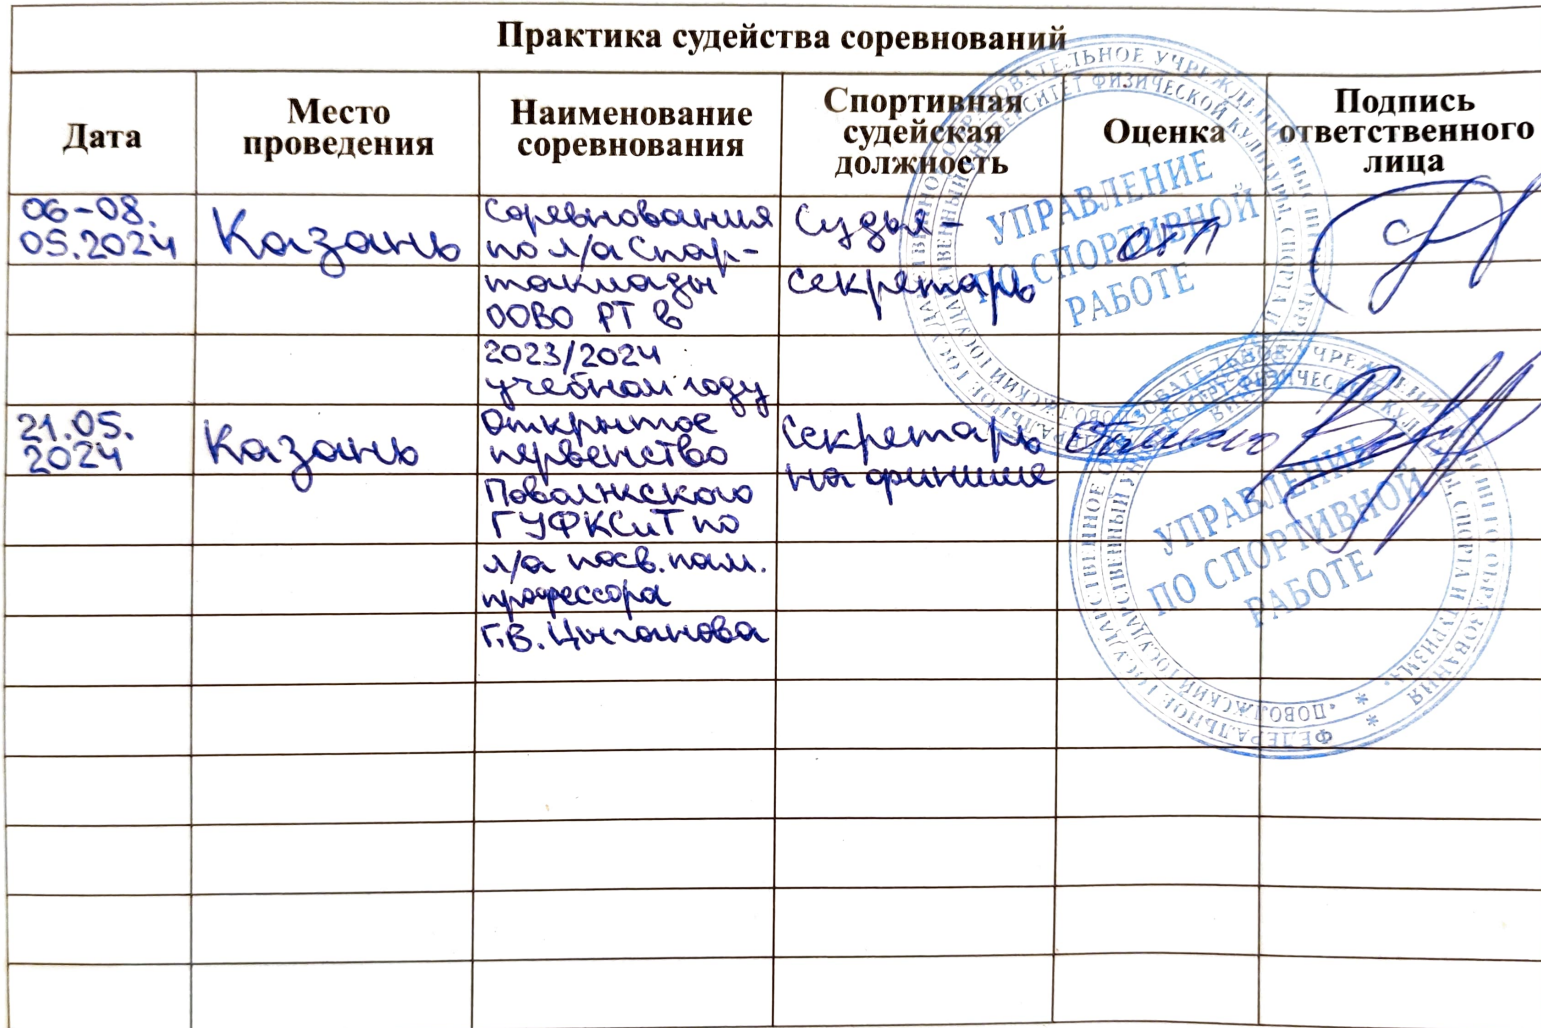 Практика судейства соревнований
Дата
Место
проведения
Наименование
соревнования
Спортивная
судейская
должность
Оценка
Подпись
ответственного
лица
06-08.
05.2024
Казань
Соревнования
по л/а Спар-
такиады
ООВО РТ в
2023/2024
учебном году
Судья-
секретарь
отл
21.05.
2024
Казань
Открытое
первенство
Поволжского
ГУФКСиТ по
л/а посв. пам.
профессора
Г.В. Цыганова
Секретарь
на финише
Отлично
УПРАВЛЕНИЕ
ПО СПОРТИВНОЙ
РАБОТЕ
УПРАВЛЕНИЕ
ПО СПОРТИВНОЙ
РАБОТЕ